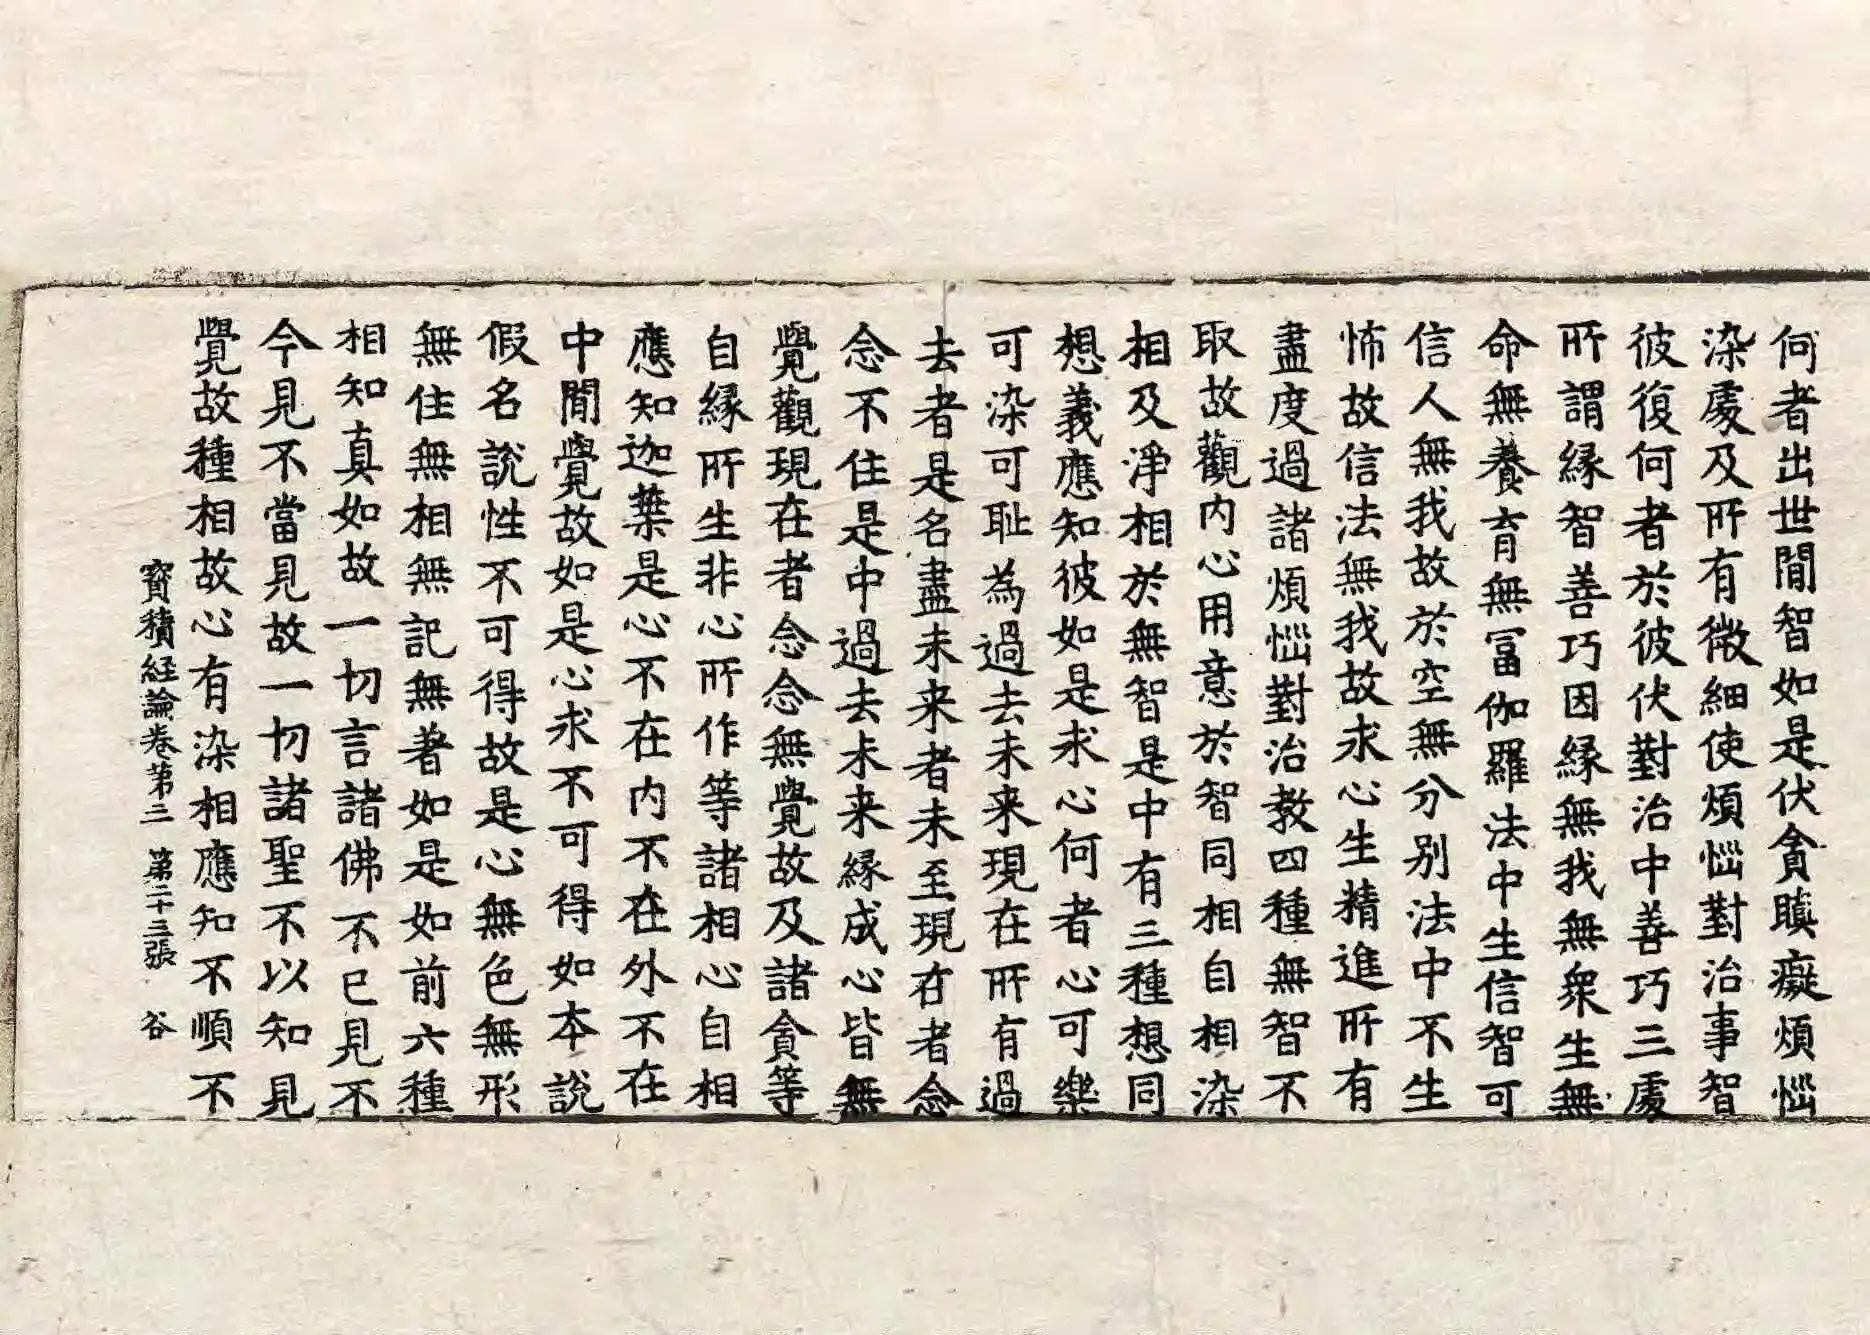 何者出世間智如是伏貪瞋癡煩惱
染處及所有微細使煩惱對治事智
彼復何者於彼伏對治中善巧三處
所謂緣智善巧因緣無我無衆生無
命無養育無富伽羅法中生信智可
信人無我故於空無分別法中不生
怖故信法無我故求心生精進所有
盡度過諸煩惱對治教四種無智不
取故觀內心用意於智同相自相染
相及淨相於無智是中有三種想同
想義應知彼如是求心何者心可樂
可染可耻為過去未来現在所有過
去者是名盡未来者未至現在者念
念不住是中過去未来緣成心皆無
覺觀現在者念念無覺故及諸貪等
自緣所生非心所作等諸相心自相
應知迦葉是心不在內不在外不在
中間覺故如是心求不可得如本說
假名說性不可得故是心無色無形
無住無相無記無著如是如前六種
相知真如故一切言諸佛不已見不
今見不當見故一切諸聖不以知見
覺故種相故心有染相應知不順不
寶積経論卷第三　第二十三張　谷